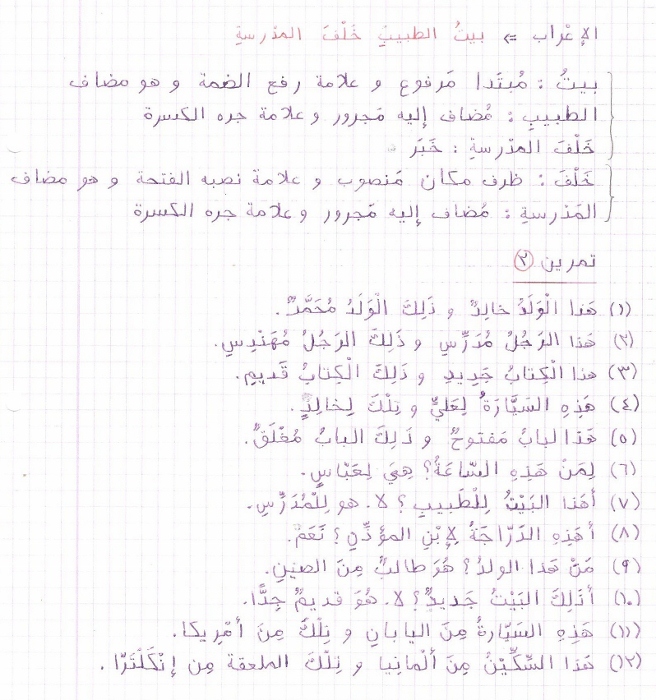 الإعْراب => بيتُ الطبيبِ خَلْفَ المدرسةِ
بيتُ : مُبتَدا مَرفوع و علامة رفع الضمة و هو مضاف
الطبيبِ : مُضاف إليه مَجرور و علامة جره الكسرة
خَلْفَ المدْرسةِ : خَبَر
خَلْفَ : ظرف مكان مَنصوب و علامة نصبه الفتحة و هو مضاف
المَدْرسةِ : مُضاف إليه مَجرور و علامة جره الكسرة
تمرين (٢)
(١) هَذا الْوَلَدُ خالِدٌ و ذَلِكَ الْوَلَدُ مُحَمَّدٌ.
(٢) هَذا الرَجُلُ مُدَرِّسٌ و ذَلِكَ الرَجُلُ مُهَنْدِسٌ.
(٣) هذا الْكِتابُ جَديدٌ و ذَلِكَ الْكِتابُ قَديمٌ.
(٤) هَذِهِ السَيَّارَةُ لِعَليٍّ و تِلْكَ لِخالِدٍ.
(٥) هَذا البابُ مَفتوحٌ و ذَلِكَ البابُ مُغْلَقٌ.
(٦) لِمَنْ هَذِهِ السّاعَةُ؟ هِيَ لِعَبّاسٍ.
(٧) أهَذا البَيْتُ لِلْطَبيبِ؟ لا. هو لِلْمُدَرِّسِ.
(٨) أهَذِهِ الدَرّاجَةُ لِإبْنِ المؤذِّنِ؟ نَعَمْ.
(٩) مَنْ هَذا الولدُ؟ هُوَ طالبٌ مِنَ الصينِ.
(١٠) أذَلِكَ البَيْتُ جَديدٌ؟ لا. هُوَ قديمٌ جِدًّا.
(١١) هَذِهِ السَيّارةُ مِنَ اليابانِ و تِلْكَ مِنَ أمْريكا.
(١٢) هَذا السِّكِّيْنُ مِنَ ألْمانيا و تِلْكَ الملعقة مِن إنْكَلْتَرّا.